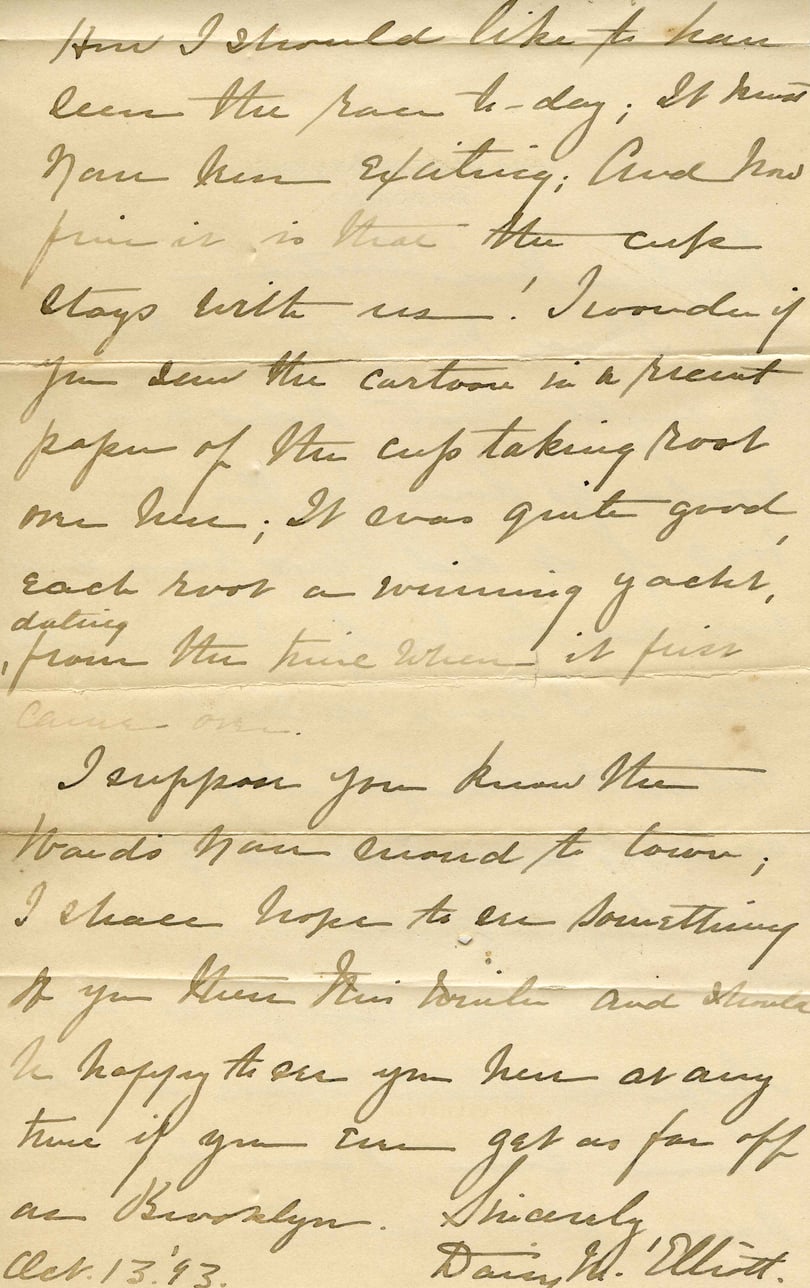 How I should like to have
seen the race to-day; It must
have been exciting; And how
fine it is that the cup
stays with us! I wonder if
you saw the cartoon in a recent
paper of the cup taking root
over here; It was quite good,
each root a winning yacht,
dating
from the time when it first
came over.
I suppose you know the
Wards have moved to town;
I shall hope to see something
of you there this winter and should
be happy to see you here at any
time if you ever get as far off
as Brooklyn. Sincerely
Oct. 13. '93. Daisy M. Elliott.